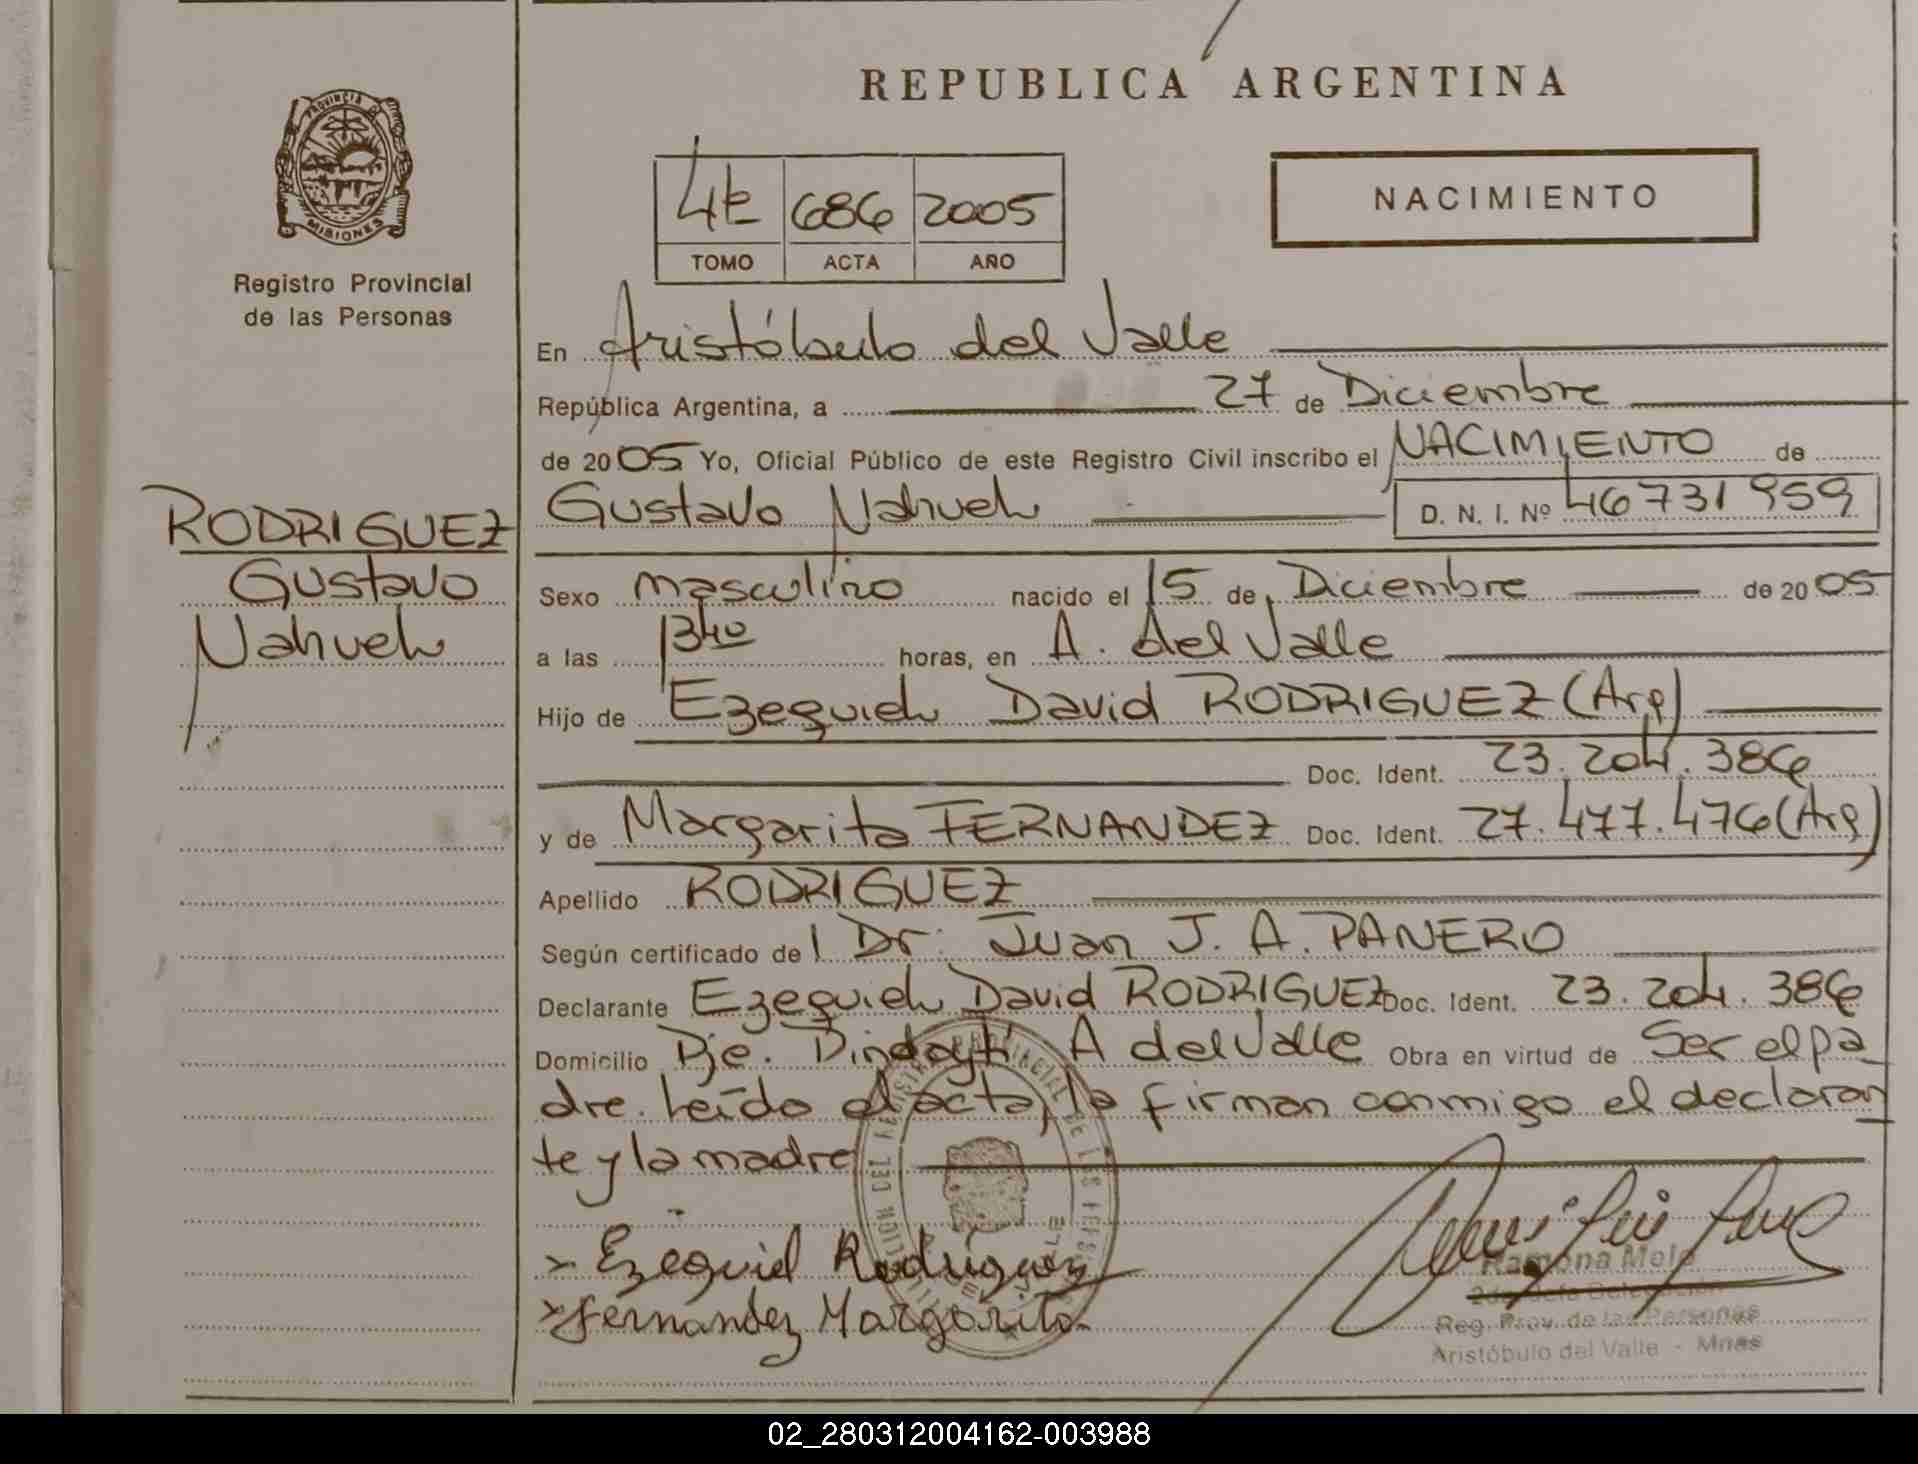 REPUBLICA ARGENTINA
PROVINCIA DE
MISIONES
Registro Provincial
de las Personas
4t 686 2005
TOMO ACTA AÑO
NACIMIENTO
En Aristóbulo del Valle
República Argentina, a 27 de Diciembre
de 2005 Yo, Oficial Público de este Registro Civil inscribo el NACIMIENTO de
Gustavo Nahuel D. N. I. Nº 46731959
RODRIGUEZ
Gustavo
Nahuel
Sexo masculino nacido el 15 de Diciembre de 2005
a las 13 40 horas, en A. del Valle
Hijo de Ezequiel David RODRIGUEZ (Arg)
Doc. Ident. 23.204.386
y de Margarita FERNANDEZ Doc. Ident. 27.477.476 (Arg)
Apellido RODRIGUEZ
Según certificado del Dr. Juan J. A. PANERO
Declarante Ezequiel David RODRIGUEZ Doc. Ident. 23.204.386
Domicilio Pje. A del Valle Obra en virtud de Ser el pa
dre. Leído el acta, la firman conmigo el declaran
te y la madre
Ezequiel Rodriguez
Fernandez Margarita
Ramona Melo
Reg. Prov. de las Personas
Aristóbulo del Valle - Mnes
02_280312004162-003988